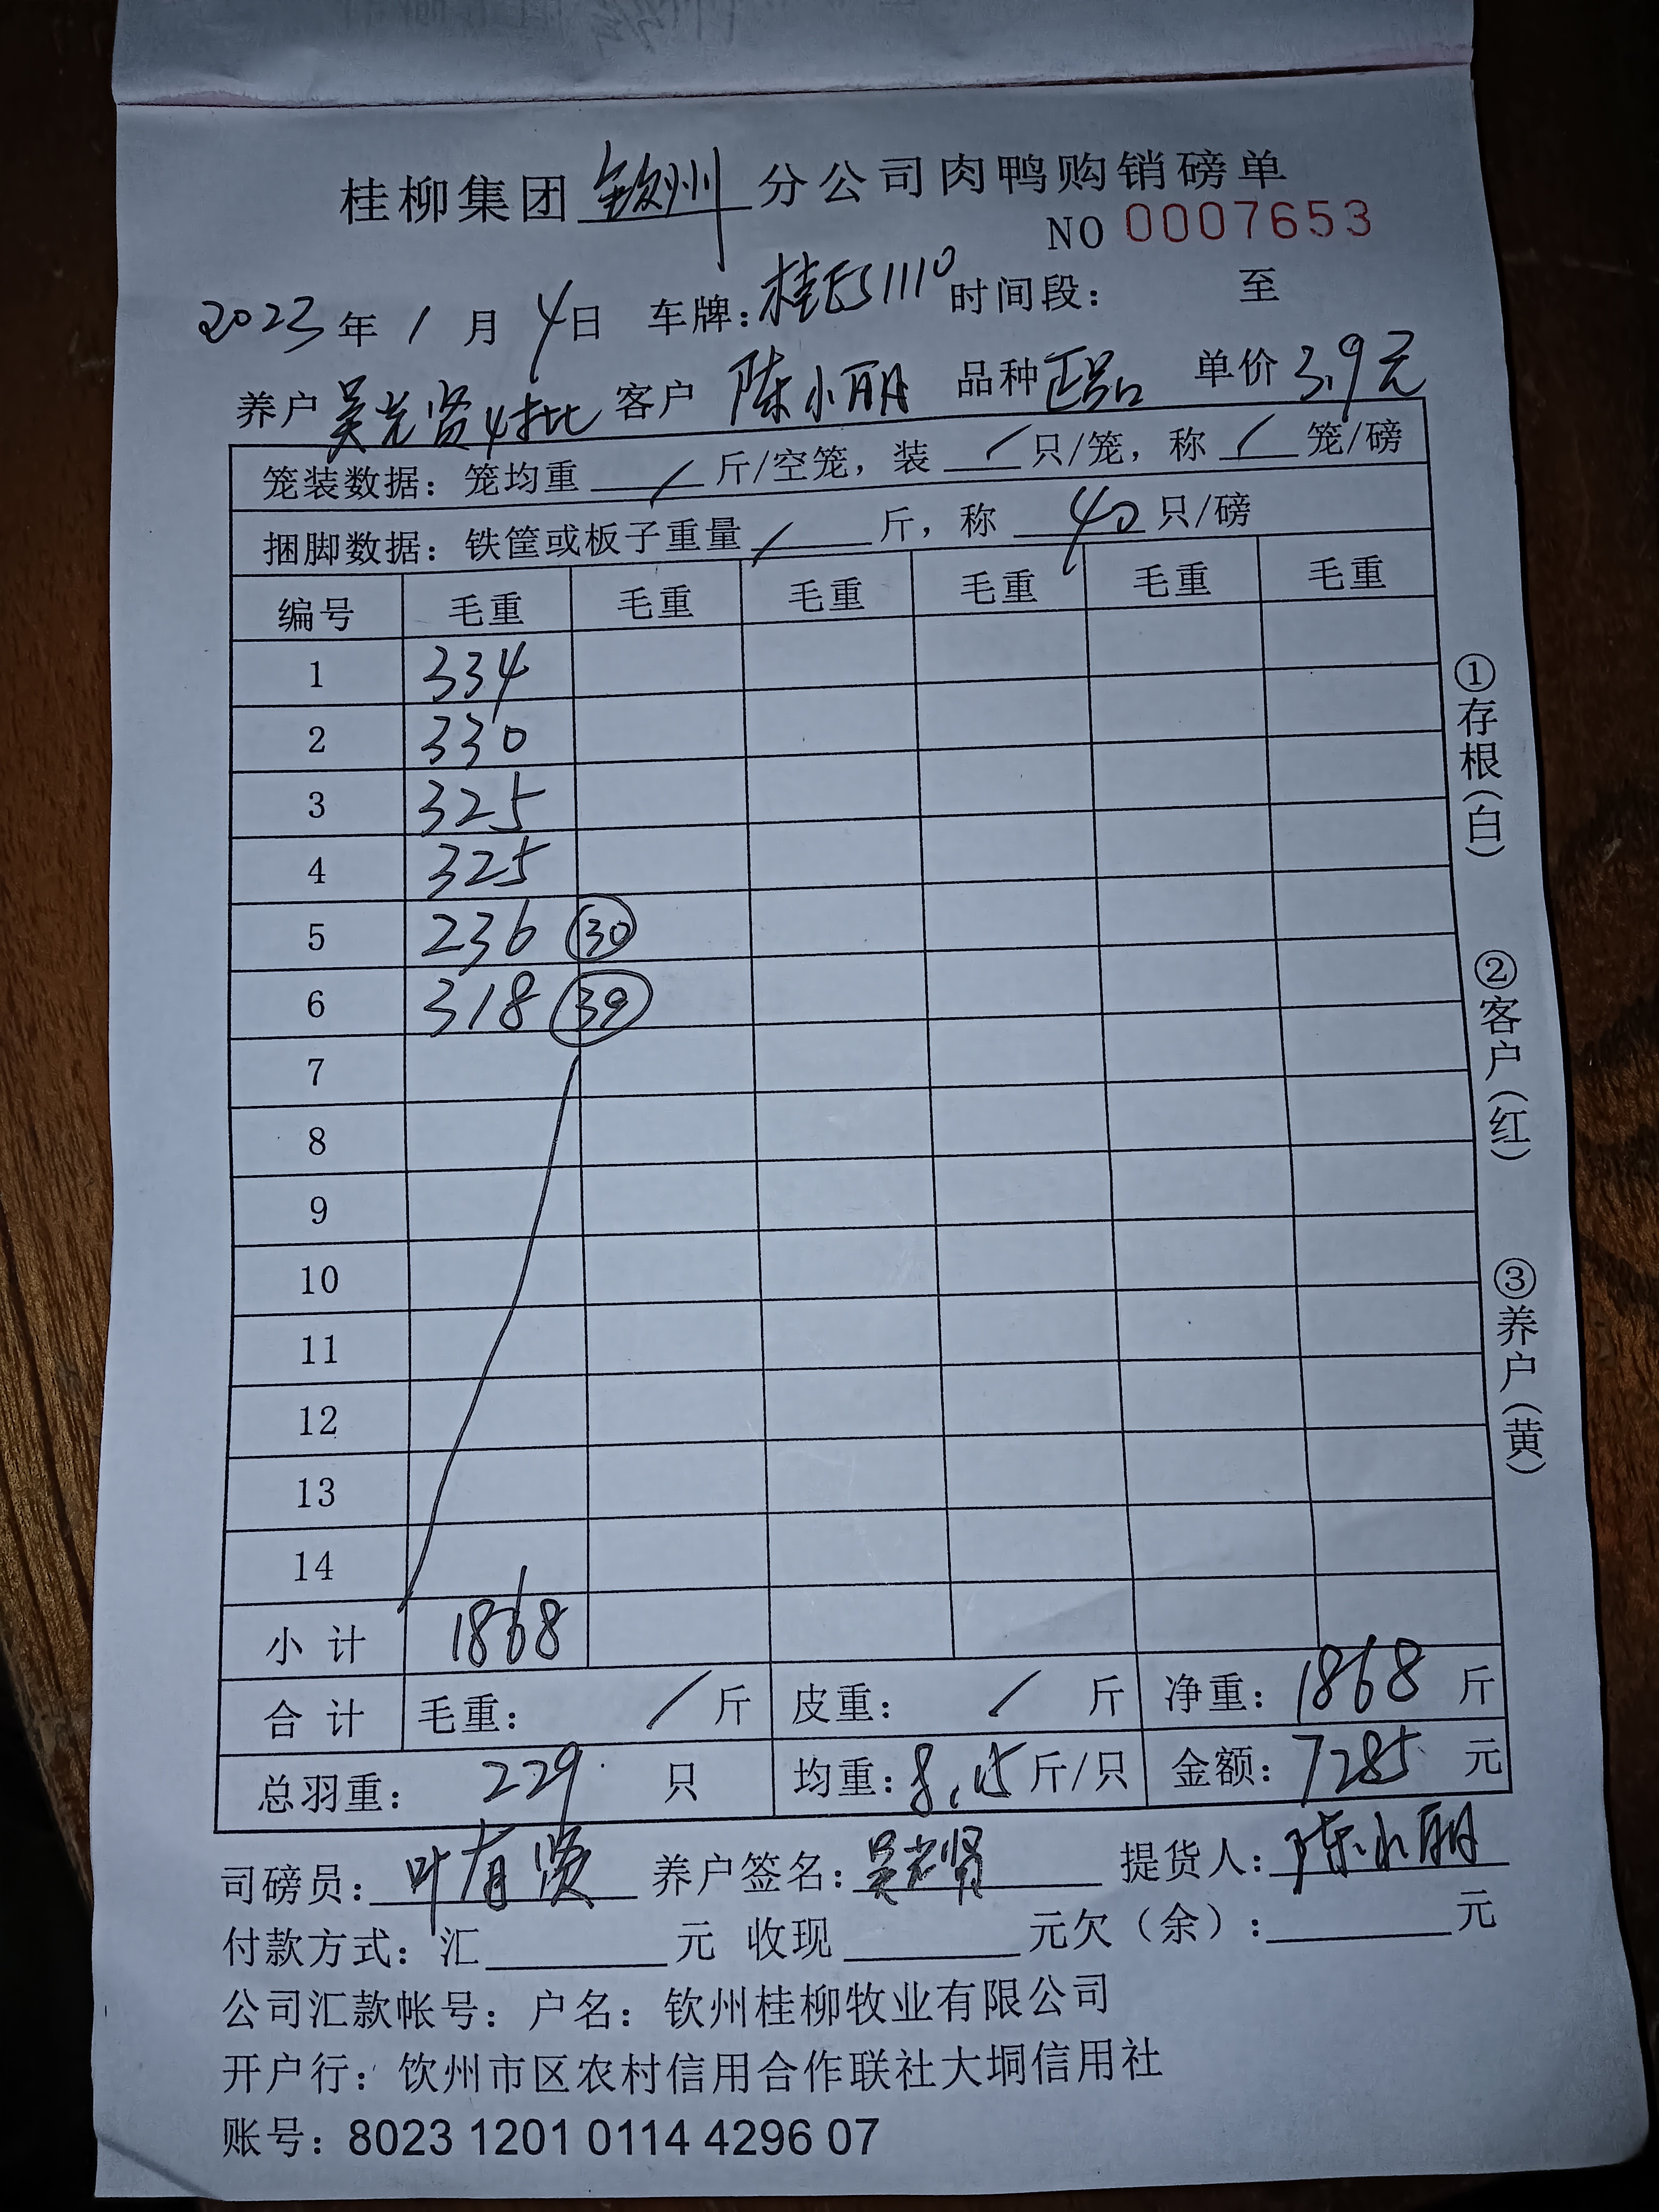 桂柳集团 钦州 分公司肉鸭购销磅单
NO 0007653
2023 年 1 月 4 日 车牌: 桂E51110 时间段: 至
养户 吴光贤 4批 客户 陈小丽 品种 正品 单价 3.9元
笼装数据: 笼均重 / 斤/空笼, 装 / 只/笼, 称 / 笼/磅
捆脚数据: 铁筐或板子重量 / 斤, 称 40 只/磅
编号 毛重 毛重 毛重 毛重 毛重 毛重
1 334
2 330
3 325
4 325
5 236 30
6 318 39
7
8
9
10
11
12
13
14
小计 1868
合计 毛重: / 斤 皮重: / 斤 净重: 1868 斤
总羽重: 229 只 均重: 8.15 斤/只 金额: 7285 元
司磅员: 叶有贤 养户签名: 吴光贤 提货人: 陈小丽
付款方式: 汇 元 收现 元欠(余): 元
公司汇款帐号: 户名: 钦州桂柳牧业有限公司
开户行: 钦州市区农村信用合作联社大垌信用社
账号: 8023 1201 0114 4296 07
①存根(白)
②客户(红)
③养户(黄)